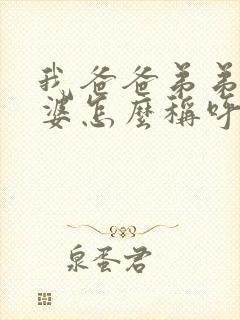 我爸爸弟弟
婆怎麼稱呼
泉蛋君